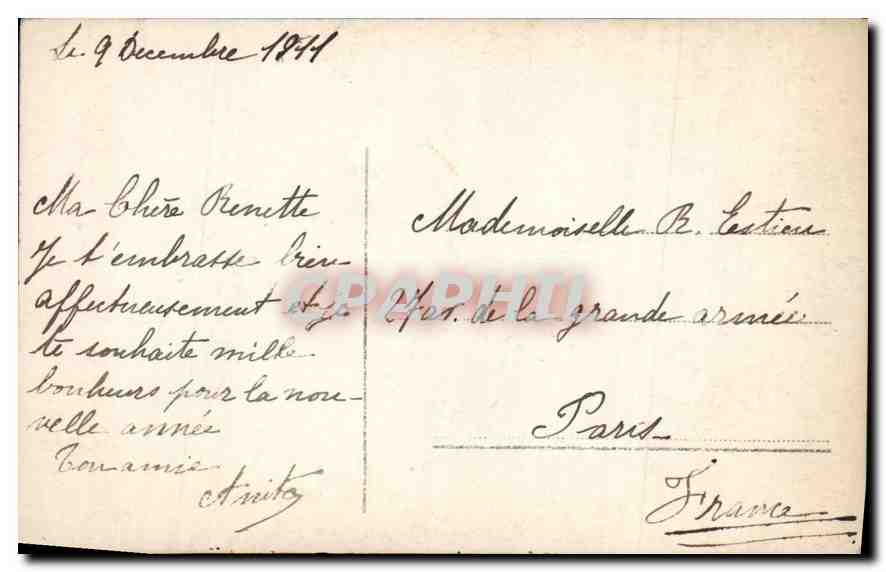 Le 9 Decembre 1911
Ma Chère Renette
Je t'embrasse bien
affectueusement et je
te souhaite mille
bonheurs pour la nou-
velle année
Ton amie
Anita
Mademoiselle R. Estieu
av. de la grande armée
Paris
France
CPAPHIL